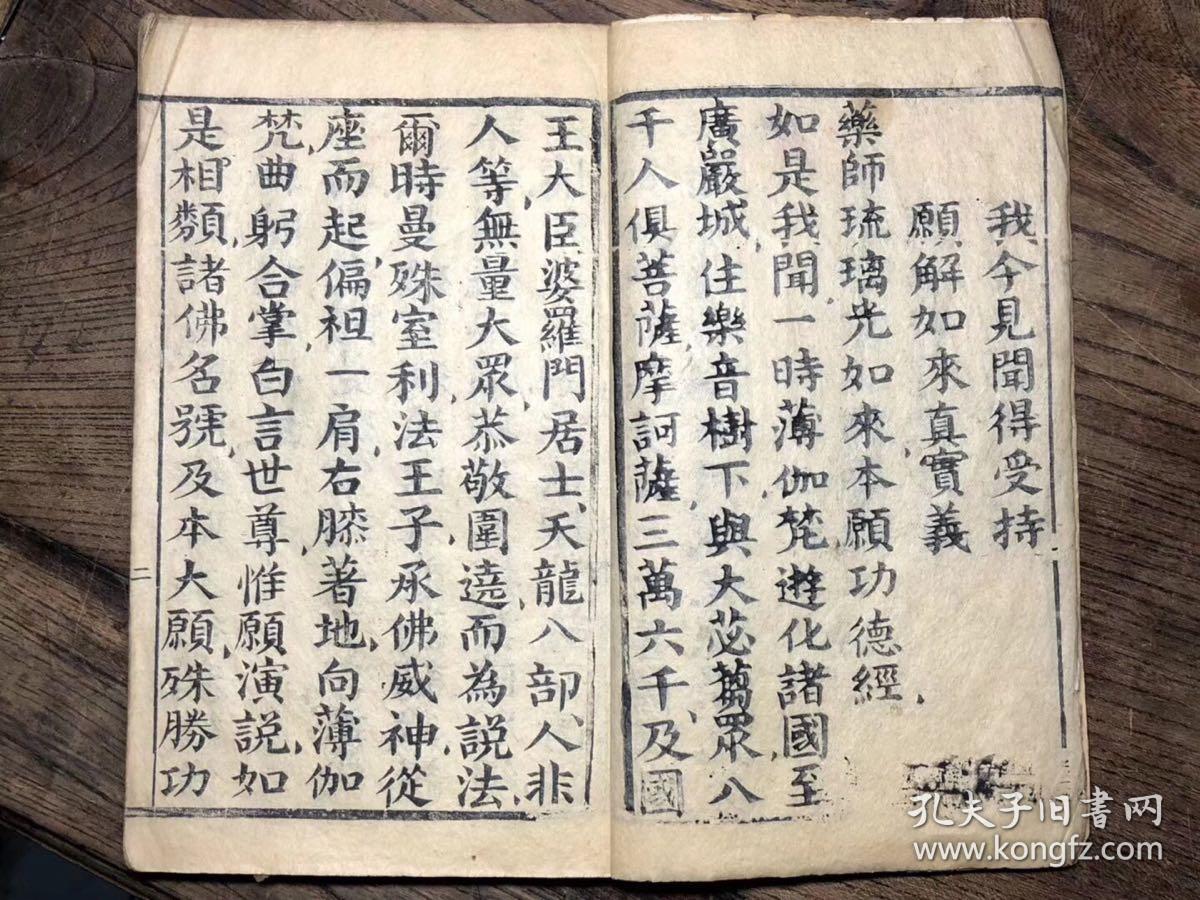 我今見聞得受持
願解如來真實義
藥師琉璃光如來本願功德經
如是我聞一時薄伽梵遊化諸國至
廣嚴城住樂音樹下與大苾蒭眾八
千人俱菩薩摩訶薩三萬六千及國
王大臣婆羅門居士天龍八部人非
人等無量大眾恭敬圍遶而為說法
爾時曼殊室利法王子承佛威神從
座而起偏袒一肩右膝著地向薄伽
梵曲躬合掌白言世尊惟願演說如
是相類諸佛名號及本大願殊勝功
二
孔夫子旧书网
www.kongfz.com